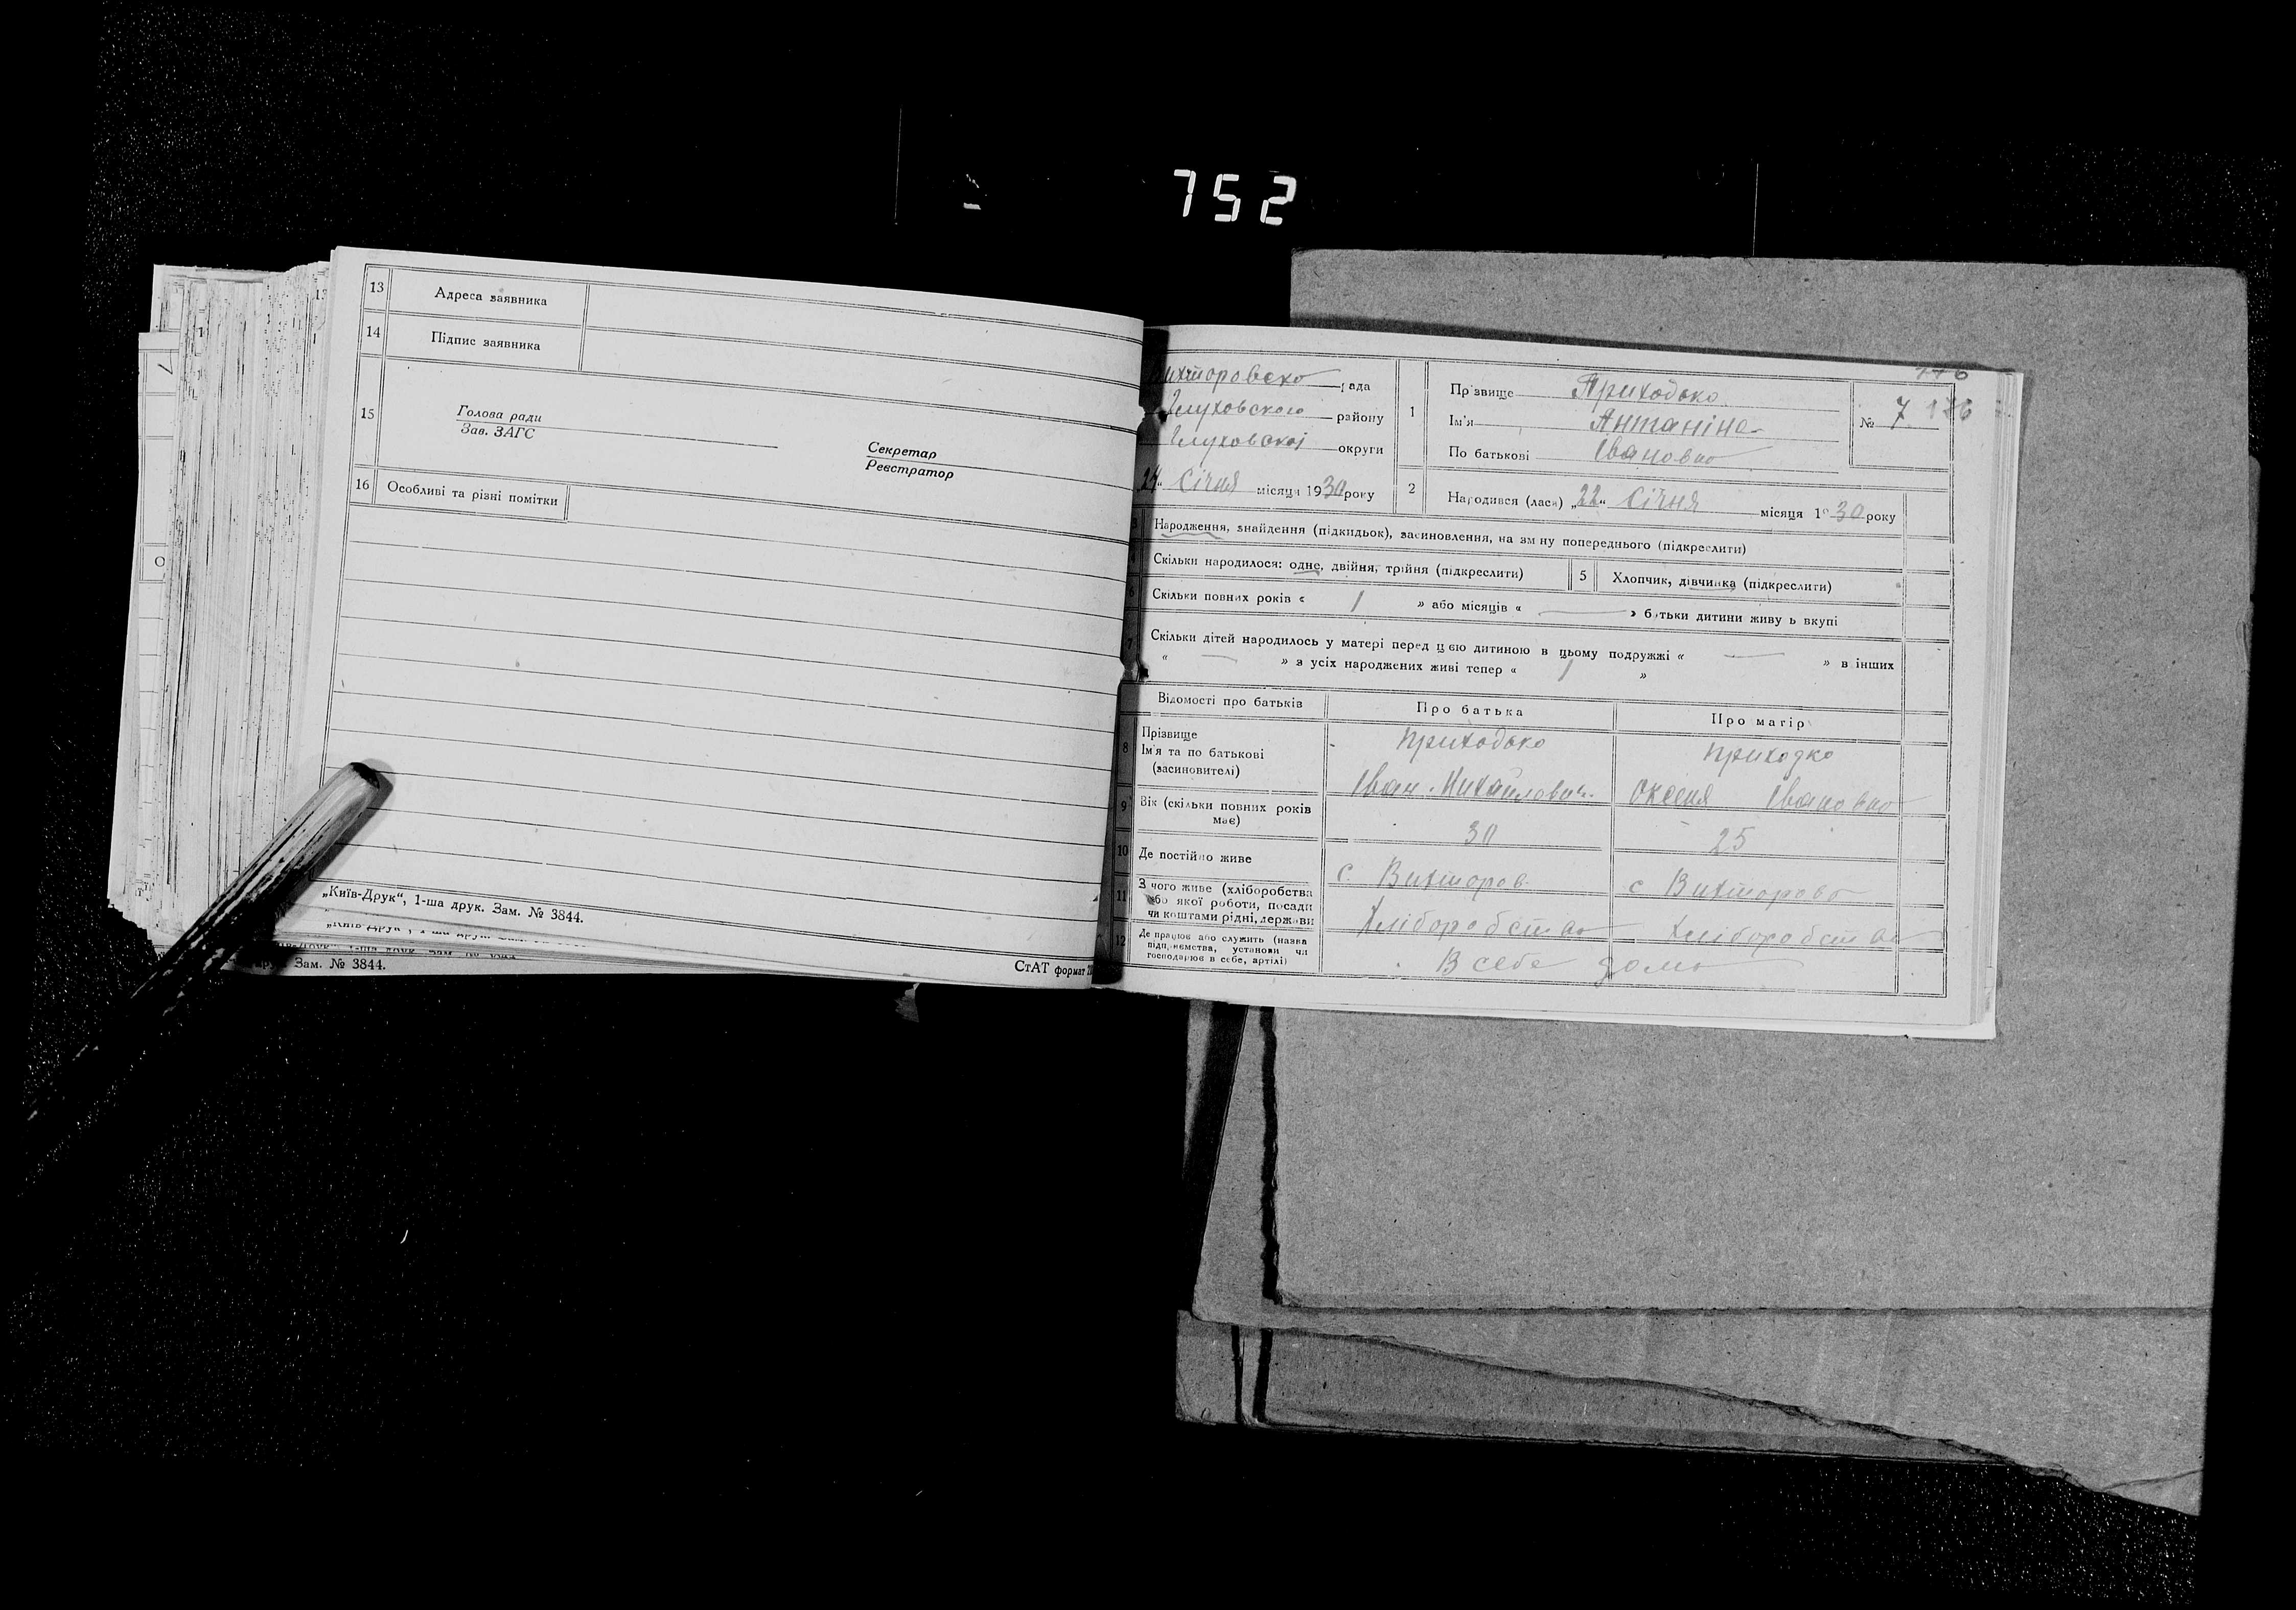 752
13 Адреса заявника
14 Підпис заявника
15 Голова ради
Зав. ЗАГС
Секретар
Реєстратор
16 Особливі та різні помітки
„Київ-Друк“, 1-ша друк. Зам. № 3844.
Зам. № 3844.
СтАТ формат
рада
Глуховского району
Глуховскої округи
24 Січня місяця 1930 року
176
1 Прізвище Приходько
Ім'я Антаніна
По батькові Івановна
№ 7 176
2 Народився (лася) „22“ Січня місяця 1930 року
3 Народження, знайдення (підкидьок), засиновлення, на зміну попереднього (підкреслити)
Скільки народилося: одне, двійня, трійня (підкреслити)
5 Хлопчик, дівчинка (підкреслити)
6 Скільки повних років « 1 » або місяців « — » батьки дитини живуть вкупі
7 Скільки дітей народилось у матері перед цією дитиною в цьому подружжі « — » в інших
« — » з усіх народжених живі тепер « 1 »
Відомості про батьків Про батька Про матір
8 Прізвище Приходько Приходко
Ім'я та по батькові
(засиновителі) Іван Михайлович Оксеня Івановна
9 Вік (скільки повних років
має) 30 25
10 Де постійно живе с. Вихторов с Вихторово
11 З чого живе (хліборобства
або якої роботи, посади
чи коштами рідні, держави Хліборобства Хліборобства
12 Де працює або служить (назва
підприємства, установи чи
господарює в себе, артілі) В себе дома